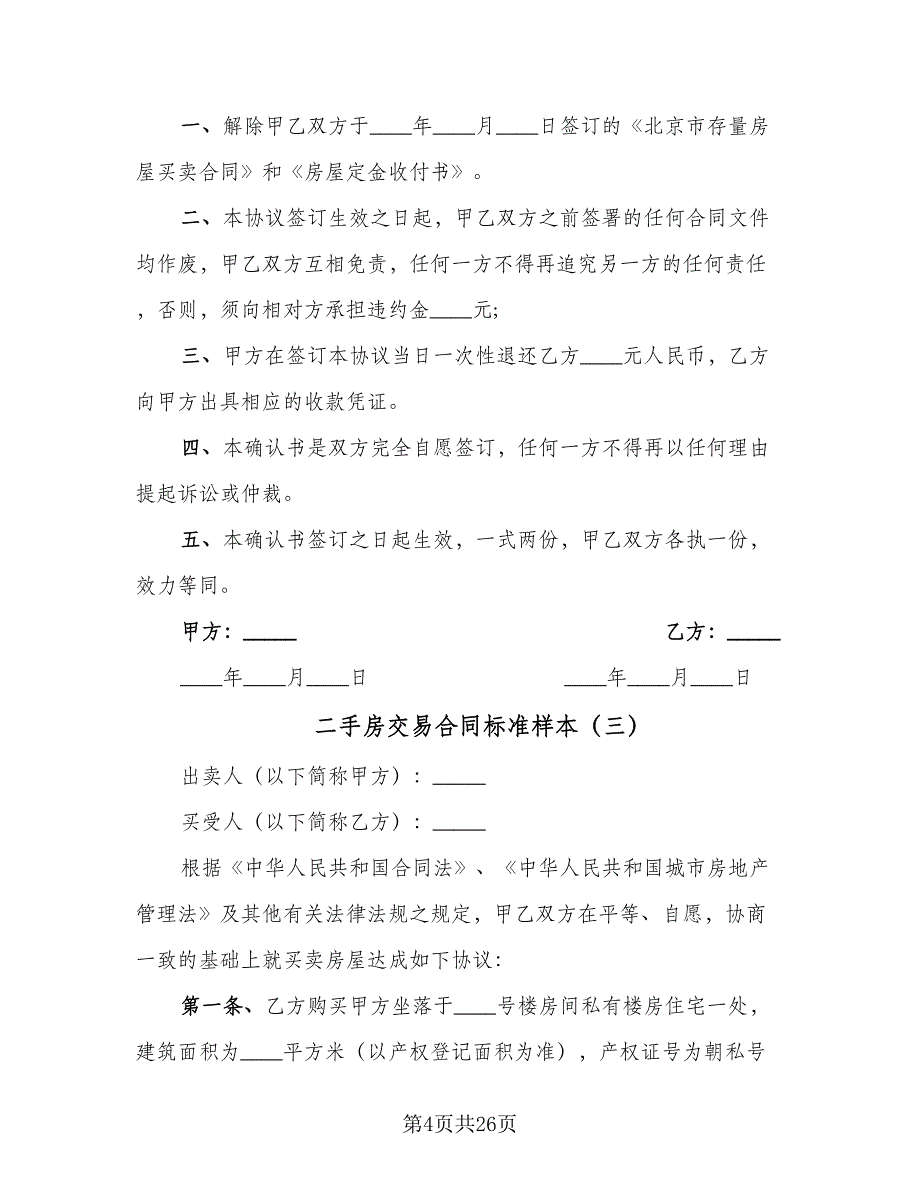 一、解除甲乙双方于____年____月____日签订的《北京市存量房
屋买卖合同》和《房屋定金收付书》。
二、本协议签订生效之日起，甲乙双方之前签署的任何合同文件
均作废，甲乙双方互相免责，任何一方不得再追究另一方的任何责任
，否则，须向相对方承担违约金____元;
三、甲方在签订本协议当日一次性退还乙方____元人民币，乙方
向甲方出具相应的收款凭证。
四、本确认书是双方完全自愿签订，任何一方不得再以任何理由
提起诉讼或仲裁。
五、本确认书签订之日起生效，一式两份，甲乙双方各执一份，
效力等同。
甲方：_____ 乙方：_____
____年____月____日 ____年____月____日
二手房交易合同标准样本（三）
出卖人（以下简称甲方）：_____
买受人（以下简称乙方）：_____
根据《中华人民共和国合同法》、《中华人民共和国城市房地产
管理法》及其他有关法律法规之规定，甲乙双方在平等、自愿，协商
一致的基础上就买卖房屋达成如下协议：
第一条、乙方购买甲方坐落于____号楼房间私有楼房住宅一处，
建筑面积为____平方米（以产权登记面积为准），产权证号为朝私号
第4页共26页